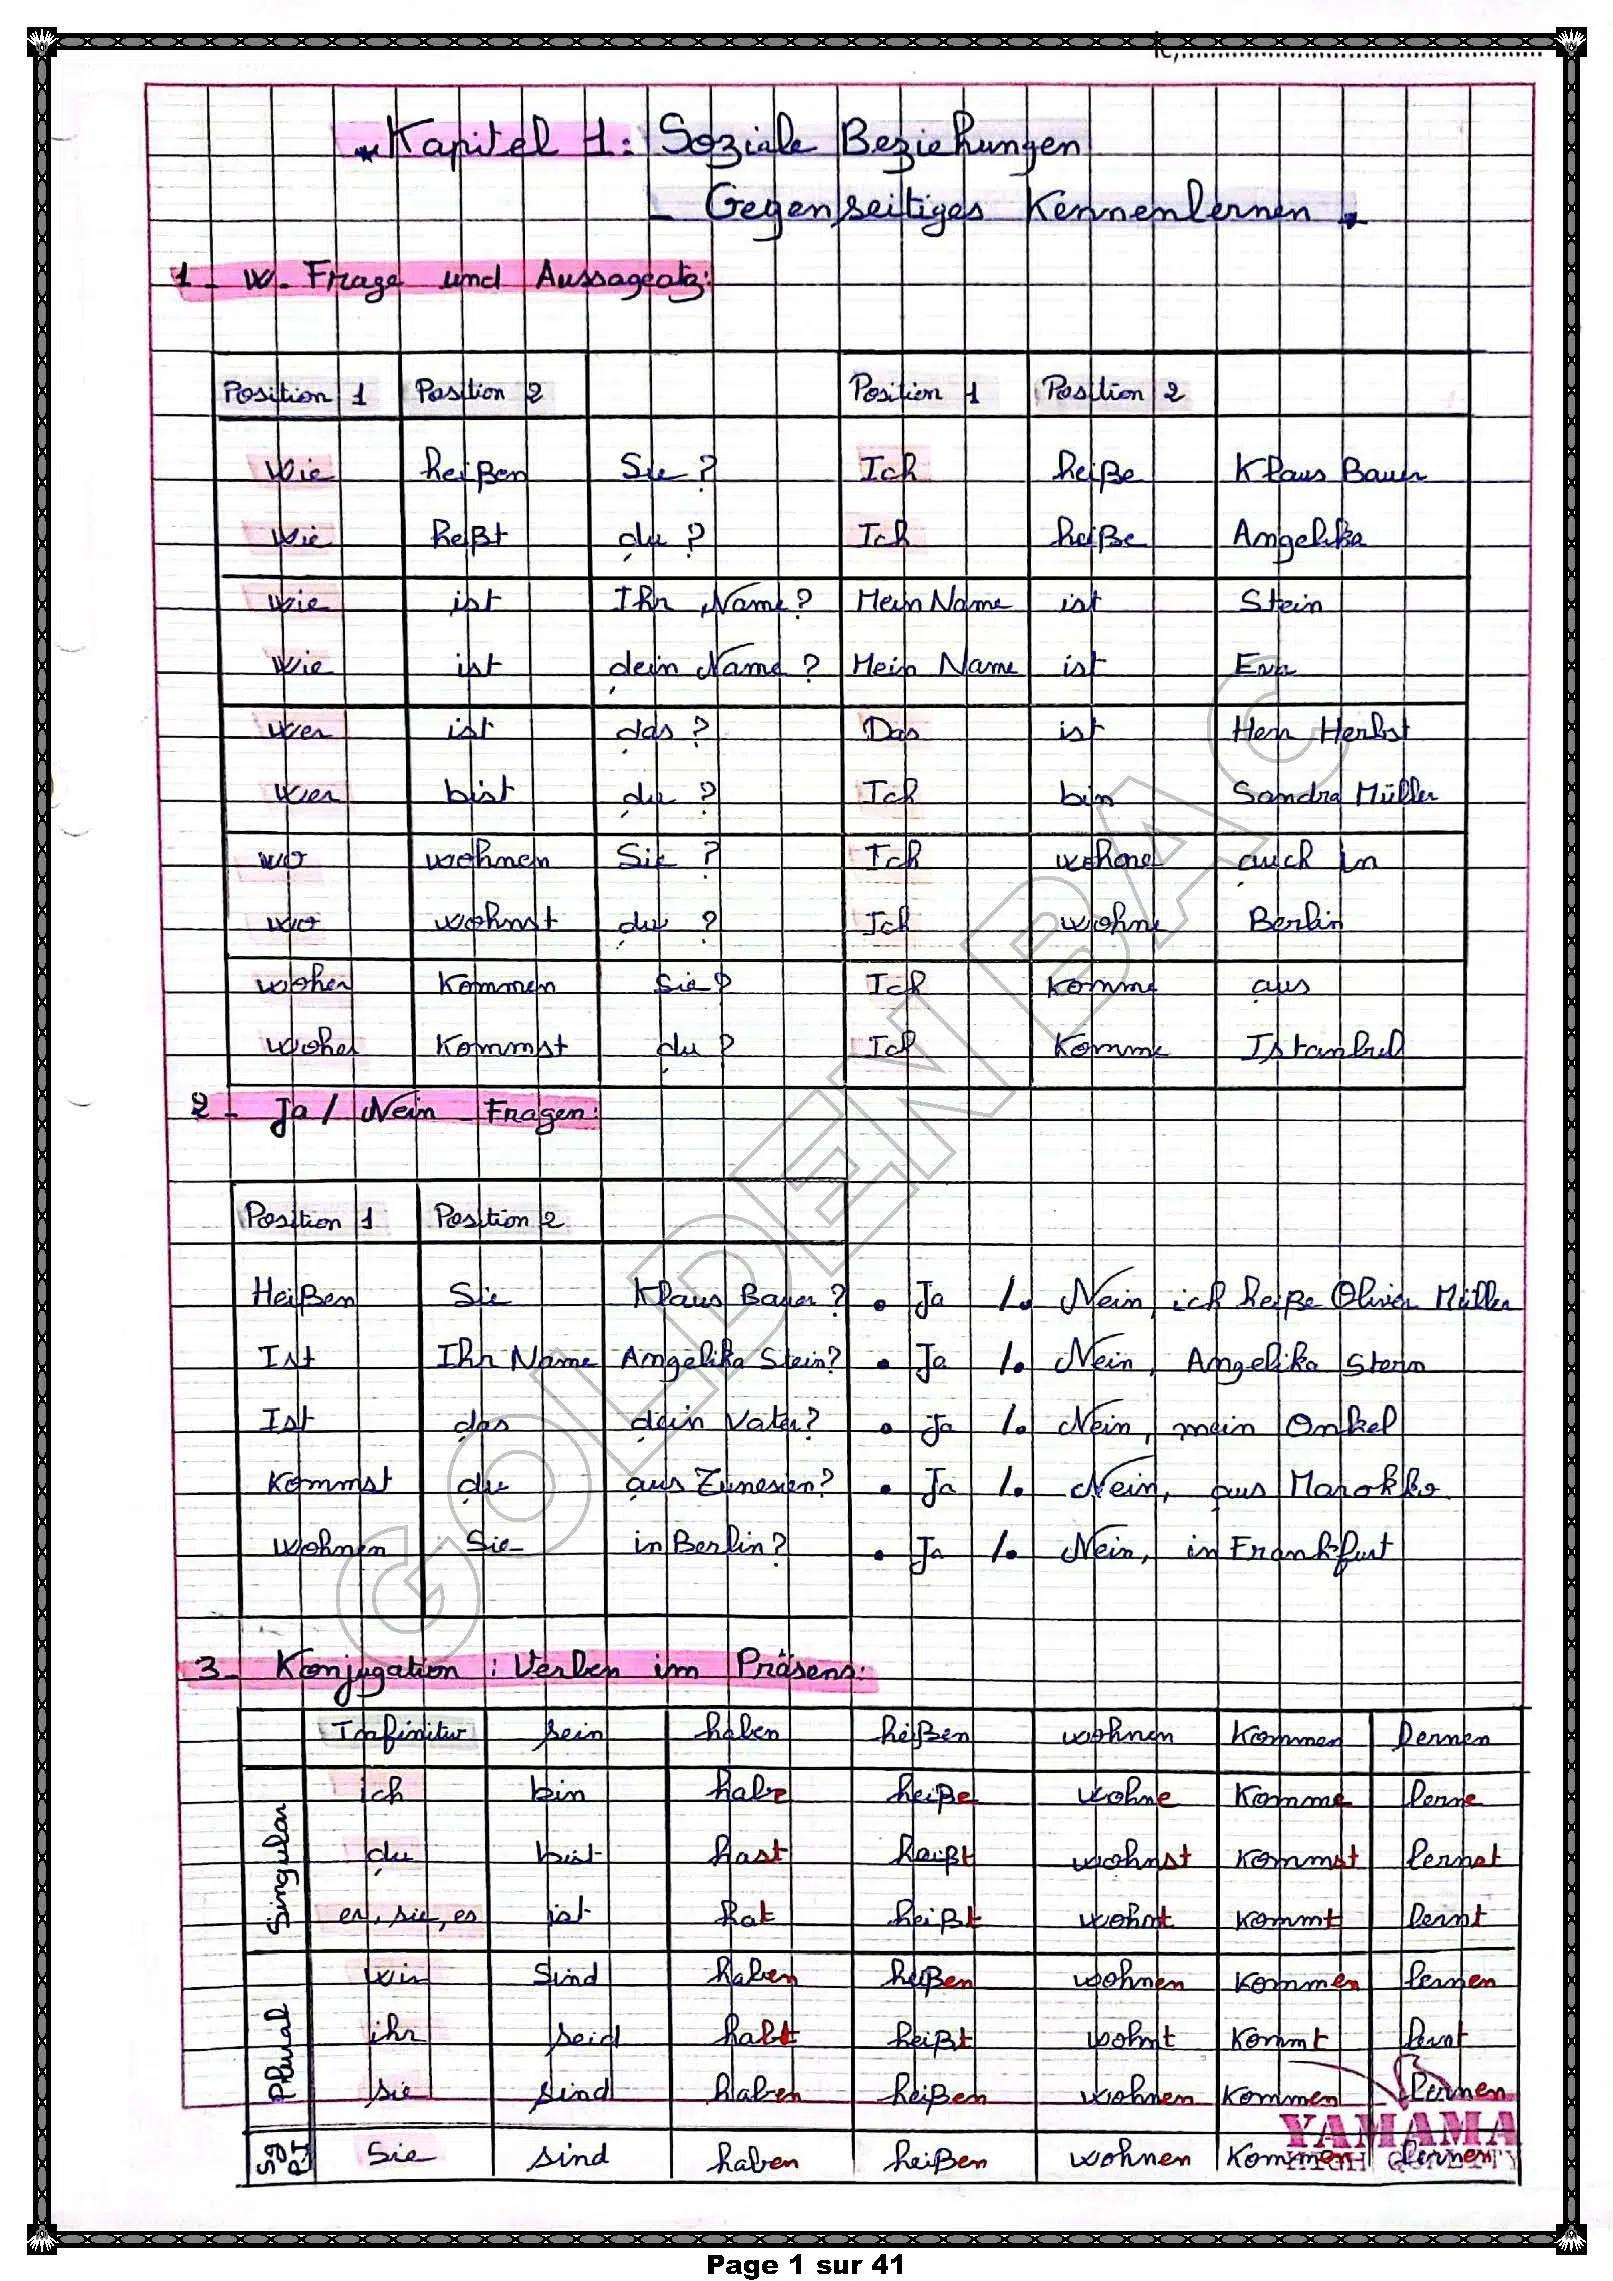 Kapitel 1: Soziale Beziehungen
- Gegenseitiges Kennenlernen
1 - W - Frage und Aussagesatz:
Position 1 Position 2 Position 1 Position 2
Wie heißen Sie ? Ich heiße Klaus Bauer
Wie heißt du ? Ich heiße Angelika
Wie ist Ihr Name ? Mein Name ist Stein
Wie ist dein Name ? Mein Name ist Eva
Wer ist das ? Das ist Herr Herbst
Wer bist du ? Ich bin Sandra Müller
Wo wohnen Sie ? Ich wohne auch in
Wo wohnst du ? Ich wohne Berlin
Woher Kommen Sie ? Ich Komme aus
Woher Kommst du ? Ich Komme Istanbul
2 - Ja / Nein - Fragen:
Position 1 Position 2
Heißen Sie Klaus Bauer ? • Ja / • Nein, ich heiße Oliver Müller
Ist Ihr Name Angelika Stein? • Ja / • Nein, Angelika Stern
Ist das dein Vater? • Ja / • Nein, mein Onkel
Kommst du aus Tunesien? • Ja / • Nein, aus Marokko
Wohnen Sie in Berlin? • Ja / • Nein, in Frankfurt
3 - Konjugation : Verben im Präsens:
Infinitiv sein haben heißen wohnen Kommen lernen
Singular
ich bin habe heiße wohne Komme lerne
du bist hast heißt wohnst Kommst lernst
er, sie, es ist hat heißt wohnt Kommt lernt
Plural
wir sind haben heißen wohnen Kommen lernen
ihr seid habt heißt wohnt Kommt lernt
sie sind haben heißen wohnen Kommen lernen
Sg Pl
Sie sind haben heißen wohnen Kommen lernen
YAMAMA
HIGH QUALITY
GOLDEN BAC
Page 1 sur 41